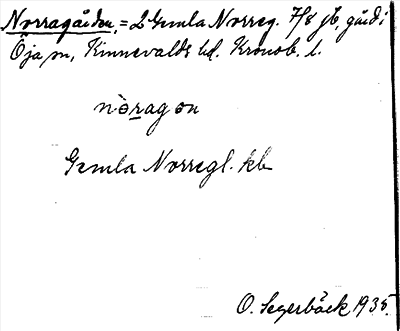 Norragården, = 2 Gemla Norreg. 7/8 jb, gård i
Öja sn, Kinnevalds hd. Kronob. l.
nòragɷn
Gemla Norregl. kb
O. Segerbäck 1935.